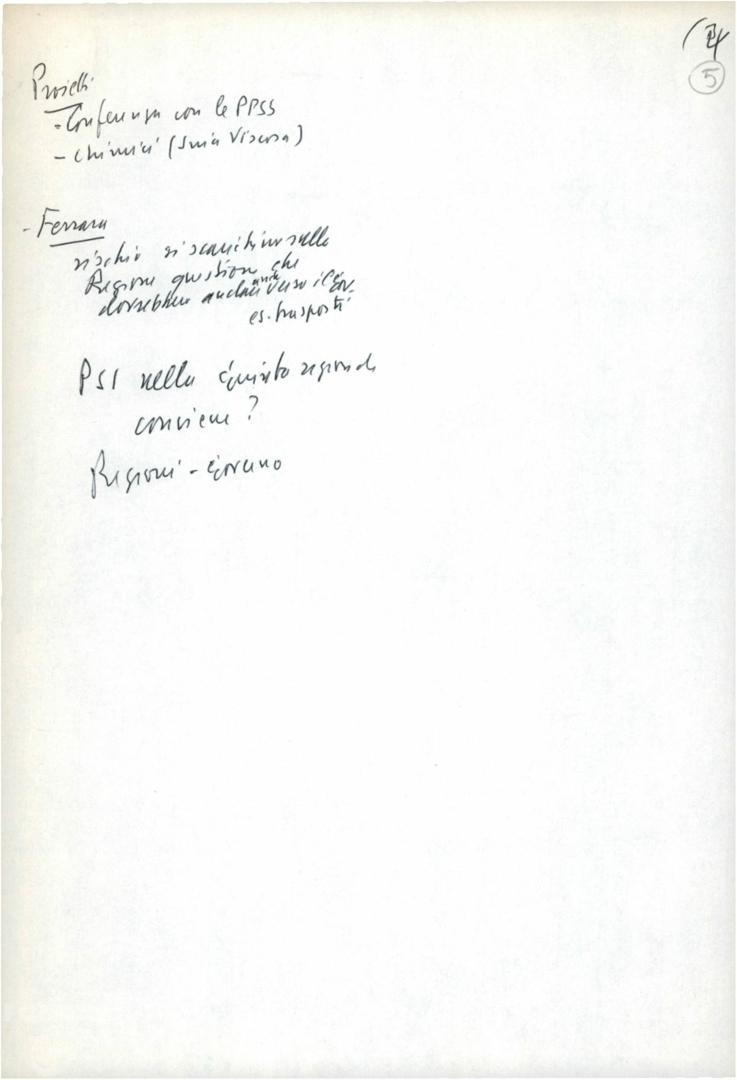 (4
5
Proietti
- Conferenza con le PPSS
- chimici (Snia Viscosa)
- Ferrara
rischio si scarichino sulla
Regione questioni che
dovrebbero andare verso il Gov.
es. trasporti
PSI nella Giunta regionale
conviene?
Regioni - Governo